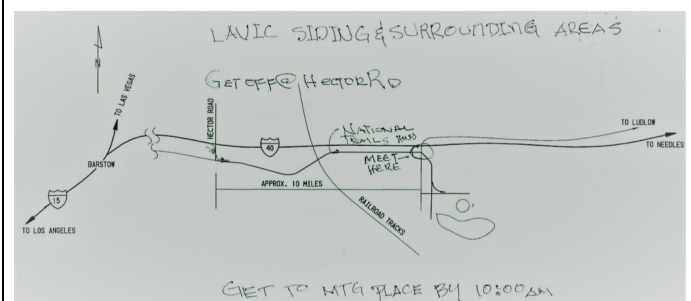 LAVIC SIDING & SURROUNDING AREAS
GET OFF @ HECTOR RD
N
TO LAS VEGAS
HECTOR ROAD
NATIONAL
TRAILS HWY
TO LUDLOW
40
TO NEEDLES
BARSTOW
MEET
HERE
APPROX. 10 MILES
15
RAILROAD TRACKS
TO LOS ANGELES
GET TO MTG PLACE BY 10:00 AM